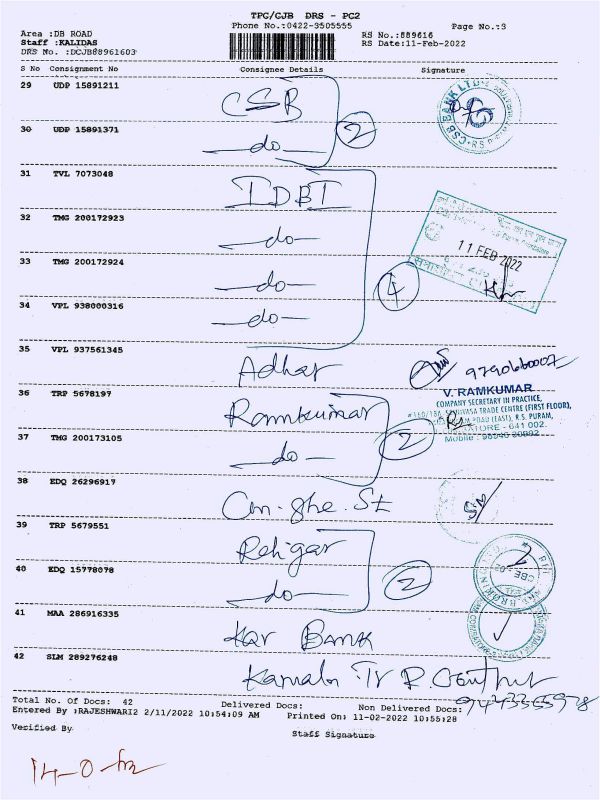 TPC/CJB DRS - PC2
Phone No.:0422-3505555
Page No.:3
Area :DB ROAD
RS No.:889616
Staff :KALIDAS
RS Date:11-Feb-2022
DRS No. :DCJB88961603
S No Consignment No Consignee Details Signature
29 UDP 15891211 CSB
30 UDP 15891371 -do- 2
31 TVL 7073048 IDBI
32 TMG 200172923 -do-
11 FEB 2022
33 TMG 200172924 -do- 4
34 VPL 938000316 -do-
35 VPL 937561345 Adhar
36 TRP 5678197 Ramkumar
V. RAMKUMAR
COMPANY SECRETARY IN PRACTICE,
TRADE CENTRE (FIRST FLOOR),
ROAD (EAST), R.S. PURAM,
COIMBATORE - 641 002.
Mobile :
37 TMG 200173105 -do- 2
38 EDQ 26296917
39 TRP 5679551 Religar
40 EDQ 15778078 -do- 2
41 MAA 286916335 Kar Bank
42 SLM 289276248
Total No. Of Docs: 42 Delivered Docs: Non Delivered Docs:
Entered By :RAJESHWARI2 2/11/2022 10:54:09 AM Printed On: 11-02-2022 10:55:28
Verified By Staff Signature